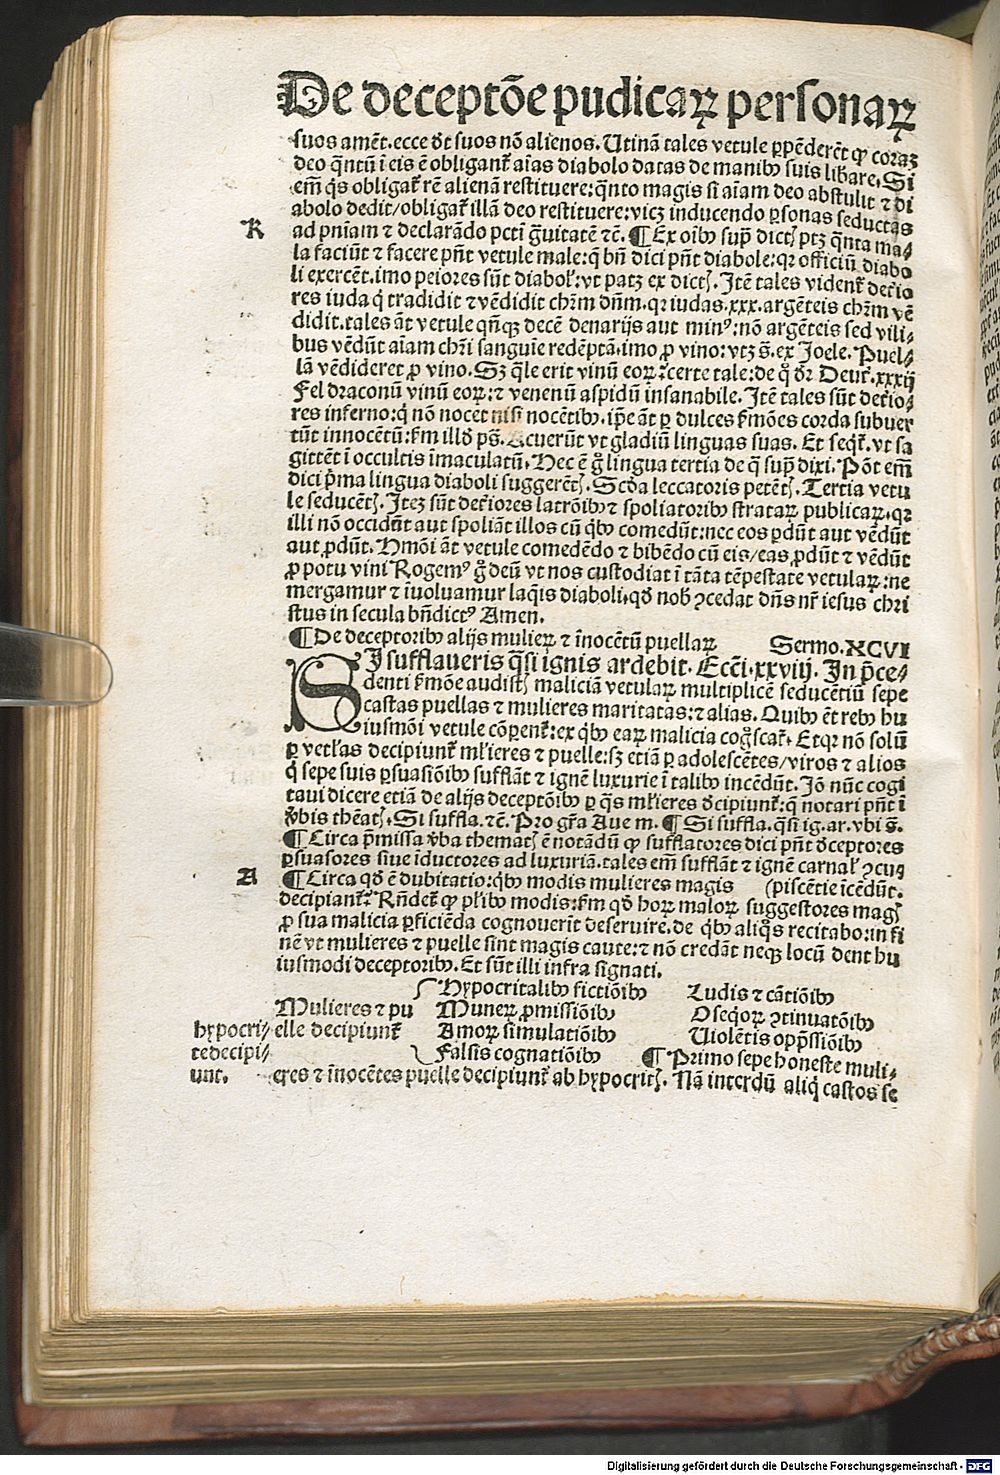 De deceptōe pudicaꝝ personaꝝ
suos amēt. ecce dt̄ suos nō alienos. Utinā tales vetule ꝑpēderēt ꝙ coraꝫ
deo q̄ntū ī eis ē obligant᷑ aīas diabolo datas de manibꝰ suis lib̄are. Si
em̄ q̄s obligat᷑ rē alienā restituere: q̄nto magis si aīam deo abstulit ⁊ di
abolo dedit/ obligat᷑ illā deo restituere: vicꝫ inducendo ꝑsonas seductas
K
ad pn̄iam ⁊ declarādo pctī g̈uitatē ⁊c̄. ¶ Ex oībꝰ sup̄ dictꝭ ptꝫ q̄nta ma-
la faciūt ⁊ facere pn̄t vetule male: ꝙ bn̄ dici pn̄t diabole: qꝛ officiū diabo
li exercēt. imo peiores sūt diabolꝭ: vt patꝫ ex dictꝭ. Itē tales vident᷑ det̄io
res iuda q̇ tradidit ⁊ vēdidit chr̄m dn̄m. qꝛ iudas .xxx. argēteis chr̄m vē
didit. tales āt vetule qn̄qꝫ decē denarijs aut minꝰ: nō argēteis sed vili-
bus vēdūt aīam chr̄i sanguīe redēptā. imo ꝓ vino: vtꝫ s̄. ex Joele. Puel-
lā vēdideret ꝓ vino. Sꝫ q̄le erit vinū eoꝝ? certe tale: de q̊ dr̄ Deut̄. xxxij
Fel draconū vinū eoꝝ: ⁊ venenū aspidū insanabile. Itē tales sūt det̄io-
res inferno: q̇ nō nocet nisi nocētibꝰ. ip̄e āt ꝑ dulces ẜmōes corda subuer
tūt innocētū: ẜm illd̄ ps̄. Acuerūt vt gladiū linguas suas. Et seqt̄. vt sa
gittēt ī occultis īmaculatū. Hec ē g̊ lingua tertia de q̄ sup̄ dixi. Pōt em̄
dici p̄ma lingua diaboli suggerētꝭ. Scd̄a leccatoris petētꝭ. Tertia vetu
le seducētꝭ. Iteꝫ sūt det̄iores latrōibꝰ ⁊ spoliatoribꝰ strataꝝ publicaꝝ. qꝛ
illi nō occidūt aut spoliāt illos cū q̇bꝰ comedūt: nec eos ꝑdūt aut vēdūt
aut ꝓdūt. Hmōi āt vetule comedēdo ⁊ bibēdo cū eis/ eas ꝓdūt ⁊ vēdūt
ꝓ potu vini Rogemꝰ g̊ deū vt nos custodiat ī tāta tēpestate vetulaꝝ: ne
mergamur ⁊ īuoluamur laq̄is diaboli. qd̄ nob̄ ꝯcedat dn̄s nr̄ iesus chri
stus in secula bn̄dictꝰ Amen.
¶ De deceptoribꝰ alijs mulieꝝ ⁊ īnocētū puellaꝝ Sermo. XCVI
SI sufflaueris q̄si ignis ardebit. Ecci. xxviij. In p̄ce-
denti ẜmōe audistꝭ maliciā vetulaꝝ multiplicē seducētiū sepe
castas puellas ⁊ mulieres maritatas: ⁊ alias. Quibꝰ ēt rebꝰ hu
iusmōi vetule cōꝑent᷑: ex q̇bꝰ eaꝝ malicia cog̊scat᷑. Etqꝛ nō solū
ꝑ vetl̄as decipiunt᷑ ml̄ieres ⁊ puelle: sꝫ etiā ꝑ adolescētes/ viros ⁊ alios
q̇ sepe suis ꝑsuasiōibꝰ sufflāt ⁊ ignē luxurie ī talibꝰ incēdūt. Jō nūc cogi
taui dicere etiā de alijs deceptōibꝰ ꝑ q̄s ml̄ieres d̄cipiunt᷑: q̇ notari pn̄t ī
v̄bis thēatꝭ. Si suffla. ⁊c̄. Pro gr̄a Aue m. ¶ Si suffla. q̄si ig. ar. vbi s̄.
¶ Circa p̄missa v̄ba thematꝭ ē notādū ꝙ sufflatores dici pn̄t d̄ceptores
ꝑsuasores siue īductores ad luxuriā. tales em̄ sufflāt ⁊ ignē carnalꝭ ꝯcu-
A
¶ Circa qd̄ ē dubitatio: q̇bꝰ modis mulieres magis (piscētie īcēdūt.
decipiant᷑? Rn̄det᷑ ꝙ pl̄ibꝰ modis: ẜm qd̄ hoꝝ maloꝝ suggestores magꝭ
ꝓ sua malicia ꝑficiēda cognouerīt deseruire. de q̇bꝰ aliq̄s recitabo: in fi
nē vt mulieres ⁊ puelle sint magis caute: ⁊ nō credāt neqꝫ locū dent hu
iusmodi deceptoribꝰ. Et sūt illi infra signati.
Hypocritalibꝰ fictiōibꝰ Ludis ⁊ cātiōibꝰ
Mulieres ⁊ pu Muneꝝ ꝓmissiōibꝰ Oseqoꝝ ꝯtinuatōibꝰ
hypocri- elle decipiunt᷑ Amoꝝ simulatiōibꝰ Violētis opp̄ssiōibꝰ
tedecipi- Falsis cognatiōibꝰ ¶ Primo sepe honeste muli-
unt. eres ⁊ īnocētes puelle decipiunt᷑ ab hypocritꝭ. Nā interdū aliq̇ castos se
Digitalisierung gefördert durch die Deutsche Forschungsgemeinschaft - DFG